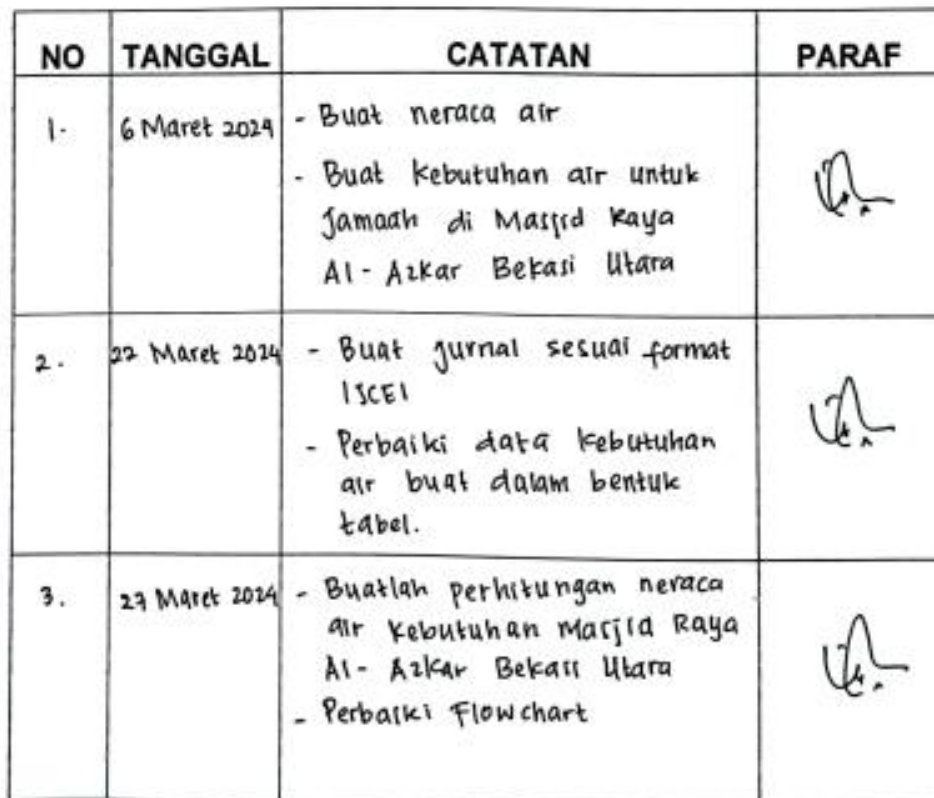 NO TANGGAL CATATAN PARAF
1. 6 Maret 2024 - Buat neraca air
- Buat kebutuhan air untuk
Jamaah di Masjid Raya
Al-Azkar Bekasi Utara
2. 22 Maret 2024 - Buat jurnal sesuai format
ISCEI
- Perbaiki data kebutuhan
air buat dalam bentuk
tabel.
3. 27 Maret 2024 - Buatlah perhitungan neraca
air kebutuhan Masjid Raya
Al-Azkar Bekasi Utara
- Perbaiki Flowchart